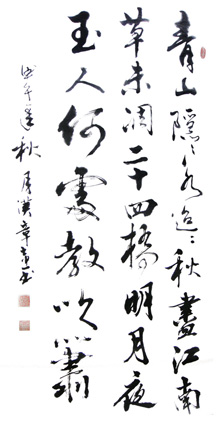 青山隱〻水迢〻秋盡江南
草未凋二十四橋明月夜
玉人何處教吹簫
午年秋漢章書